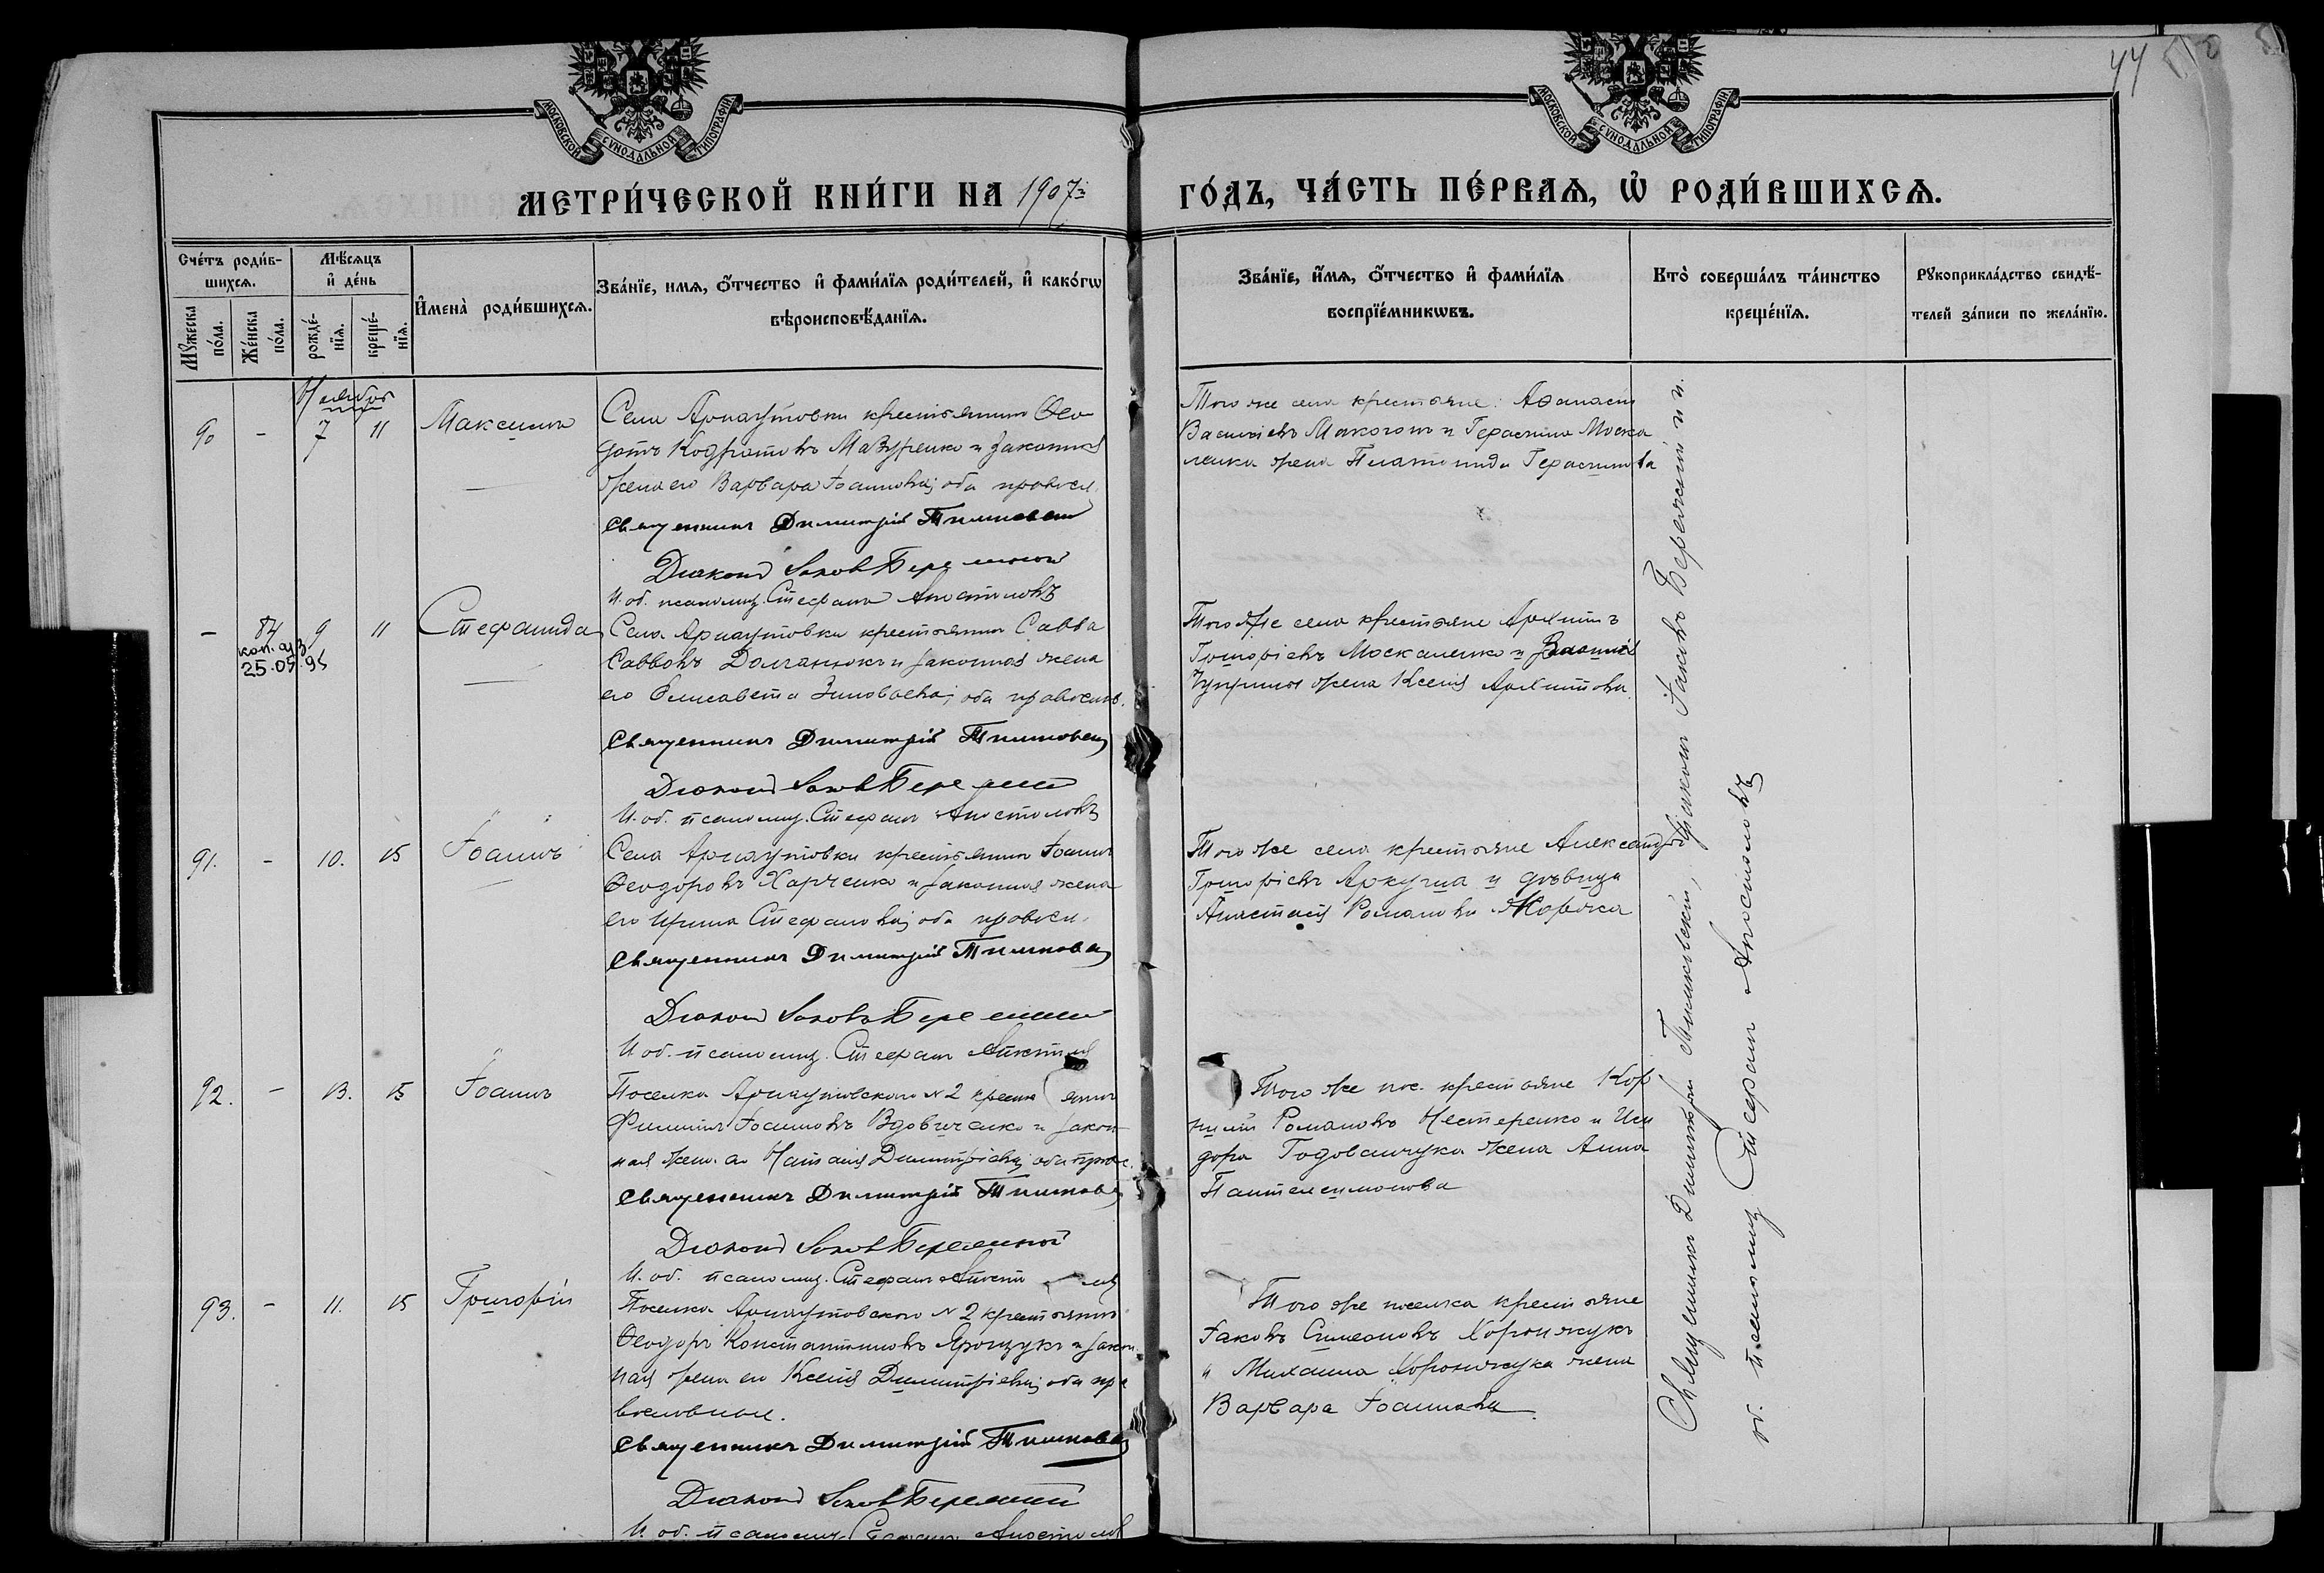 44
МОСКОВСКОЙ СѴНОДАЛЬНОЙ ТИПОГРАФІИ
МОСКОВСКОЙ СѴНОДАЛЬНОЙ ТИПОГРАФІИ
МЕТРИ́ЧЕСКОЙ КНИ́ГИ НА 1907й
ГО́ДЪ, ЧА́СТЬ ПЕ́РВАѦ, Ѡ҆ РОДИ́ВШИХСѦ.
Сче́тъ роди́в-
шихсѧ.
Мꙋ́жеска по́ла.
Же́нска по́ла.
Мѣ́сѧцъ
и҆ де́нь
рожде́-
нїѧ.
креще́-
нїѧ.
И҆мена̀ роди́вшихсѧ.
Зва́нїе, имѧ, ѻ҆́тчество и҆ фами́лїѧ роди́телей, и҆ како́гѡ
вѣроисповѣ́данїѧ.
Зва́нїе, и҆́мѧ, ѻ҆́тчество и҆ фами́лїѧ
воспрїе́мникѡвъ.
Кто̀ соверша́лъ та́инство
креще́нїѧ.
Рꙋкоприкла́дство свидѣ́-
телей за́писи по жела́нїю.
Ноябрь
90 - 7 11 Максимъ
Села Арнаутовки крестьянинъ Ѳео
дотъ Кодратовъ Мазуренко и законная
жена его Варвара Іоаннова; оба правосл.
Священникъ Димитрій
Діаконъ Іаковъ
И. об. псаломщ. Стефанъ Апостоловъ
Того же села крестьяне: Аѳанасій
Василіевъ Макогонъ и Герасима Моска
ленка жена Платонида Герасимова
- 84 9 11 Стефанида
коп.
25.05.95
Села Арнаутовки крестьянинъ Савва
Саввовъ Долганюкъ и законная жена
его Елисавета Зиновьева; оба православ.
Священникъ Димитрій
Діаконъ Іаковъ
И. об. псаломщ. Стефанъ Апостоловъ
Того же села крестьяне Архипъ
Григоріевъ Москаленко и
Чуприны жена Ксенія Архипова
91. - 10. 15 Іоаннъ
Села Арнаутовки крестьянинъ Іоаннъ
Ѳеодоровъ Харченко и законная жена
его Ирина Стефанова; оба правосл.
Священникъ Димитрій
Діаконъ Іаковъ
И об. псаломщ. Стефанъ
Того же села крестьяне Александръ
Григоріевъ Аркуша и дѣвица
Анастасія Романова
92. - 13. 15 Іоаннъ
Поселка Арнаутовскаго № 2 крестьянинъ
Филиппъ Іоанновъ Вдовиченко и закон
ная жена Димитріева; оба прав.
Священникъ Димитрій
Діаконъ Іаковъ
И. об. псаломщ. Стефанъ
Того же пос. крестьяне Кор
нилій Романовъ Нестеренко и Иси
дора Годованчука жена Анна
Пантелеимонова
93. - 11. 15 Григорій
Поселка Арнаутовскаго № 2 крестьянинъ
Ѳеодоръ Константиновъ Ярощукъ и закон
ная жена его Ксенія Димитріева; оба пра
вославные.
Священникъ Димитрій
Діаконъ Іаковъ
И. об. псаломщ. Стефанъ
Того же поселка крестьяне
Іаковъ Симеоновъ
и Михаила жена
Варвара Іоаннова
Священникъ Димитрій діаконъ Іаковъ
об. псаломщ. Стефанъ Апостоловъ